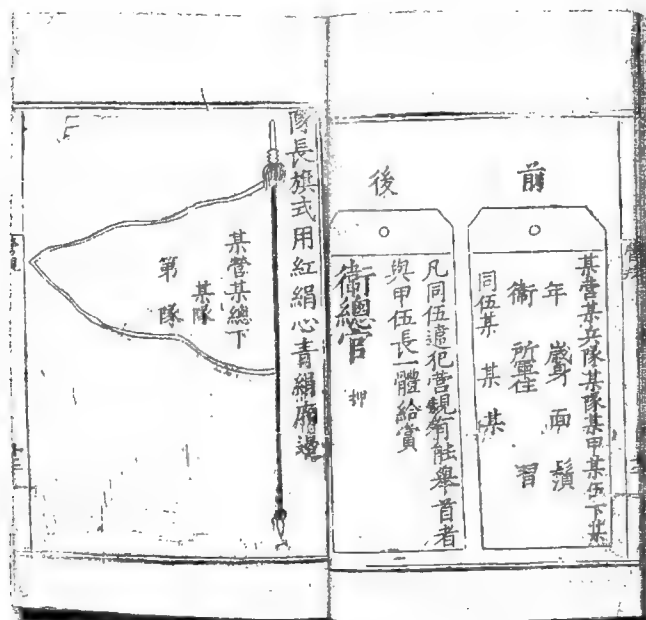 前
某營某兵隊某隊某甲某伍下某
年 歲身 面 鬚
衛 所 住 習
同伍某 某 某
後
凡同伍違犯營規有能舉首者
與甲伍長一體給賞
衛總官 押
隊長旗式用紅絹心青絹廂邊
某營某總下
某隊
第 隊